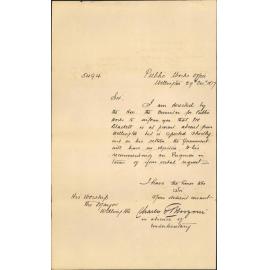 5494
Public Works Office
Wellington 29th Decr 1877
Sir
I am directed by
the Hon. the Minister for Public
Works to inform you that Mr
Blackett is at present absent from
Wellington but is expected shortly
and on his return the Government
will have no objection to his
recommending an Engineer in
terms of your verbal request
I have the honor to be
Sir
Your obedient servant
Charles T Benzoni
in absence of
Undersecretary
His Worship
The Mayor
Wellington